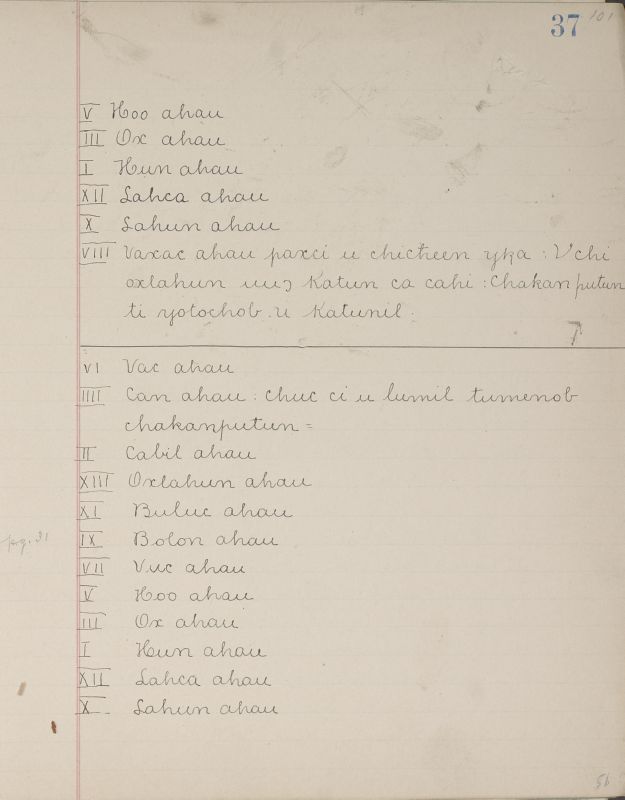 37 101
V Hoo ahau
III Ox ahau
I Hun ahau
XII Lahca ahau
X Lahun ahau
VIII Vaxac ahau paxci u chicħeen yka : Vchi
oxlahun uuɔ Katun ca cahi : Chakanputun
ti yotochob u Katunil.
VI Vac ahau
IIII Can ahau : chuc ci u lumil tumenob
chakanputun =
II Cabil ahau
XIII Oxlahun ahau
XI Buluc ahau
pg. 31
IX Bolon ahau
VII Vuc ahau
V Hoo ahau
III Ox ahau
I Hun ahau
XII Lahca ahau
X Lahun ahau